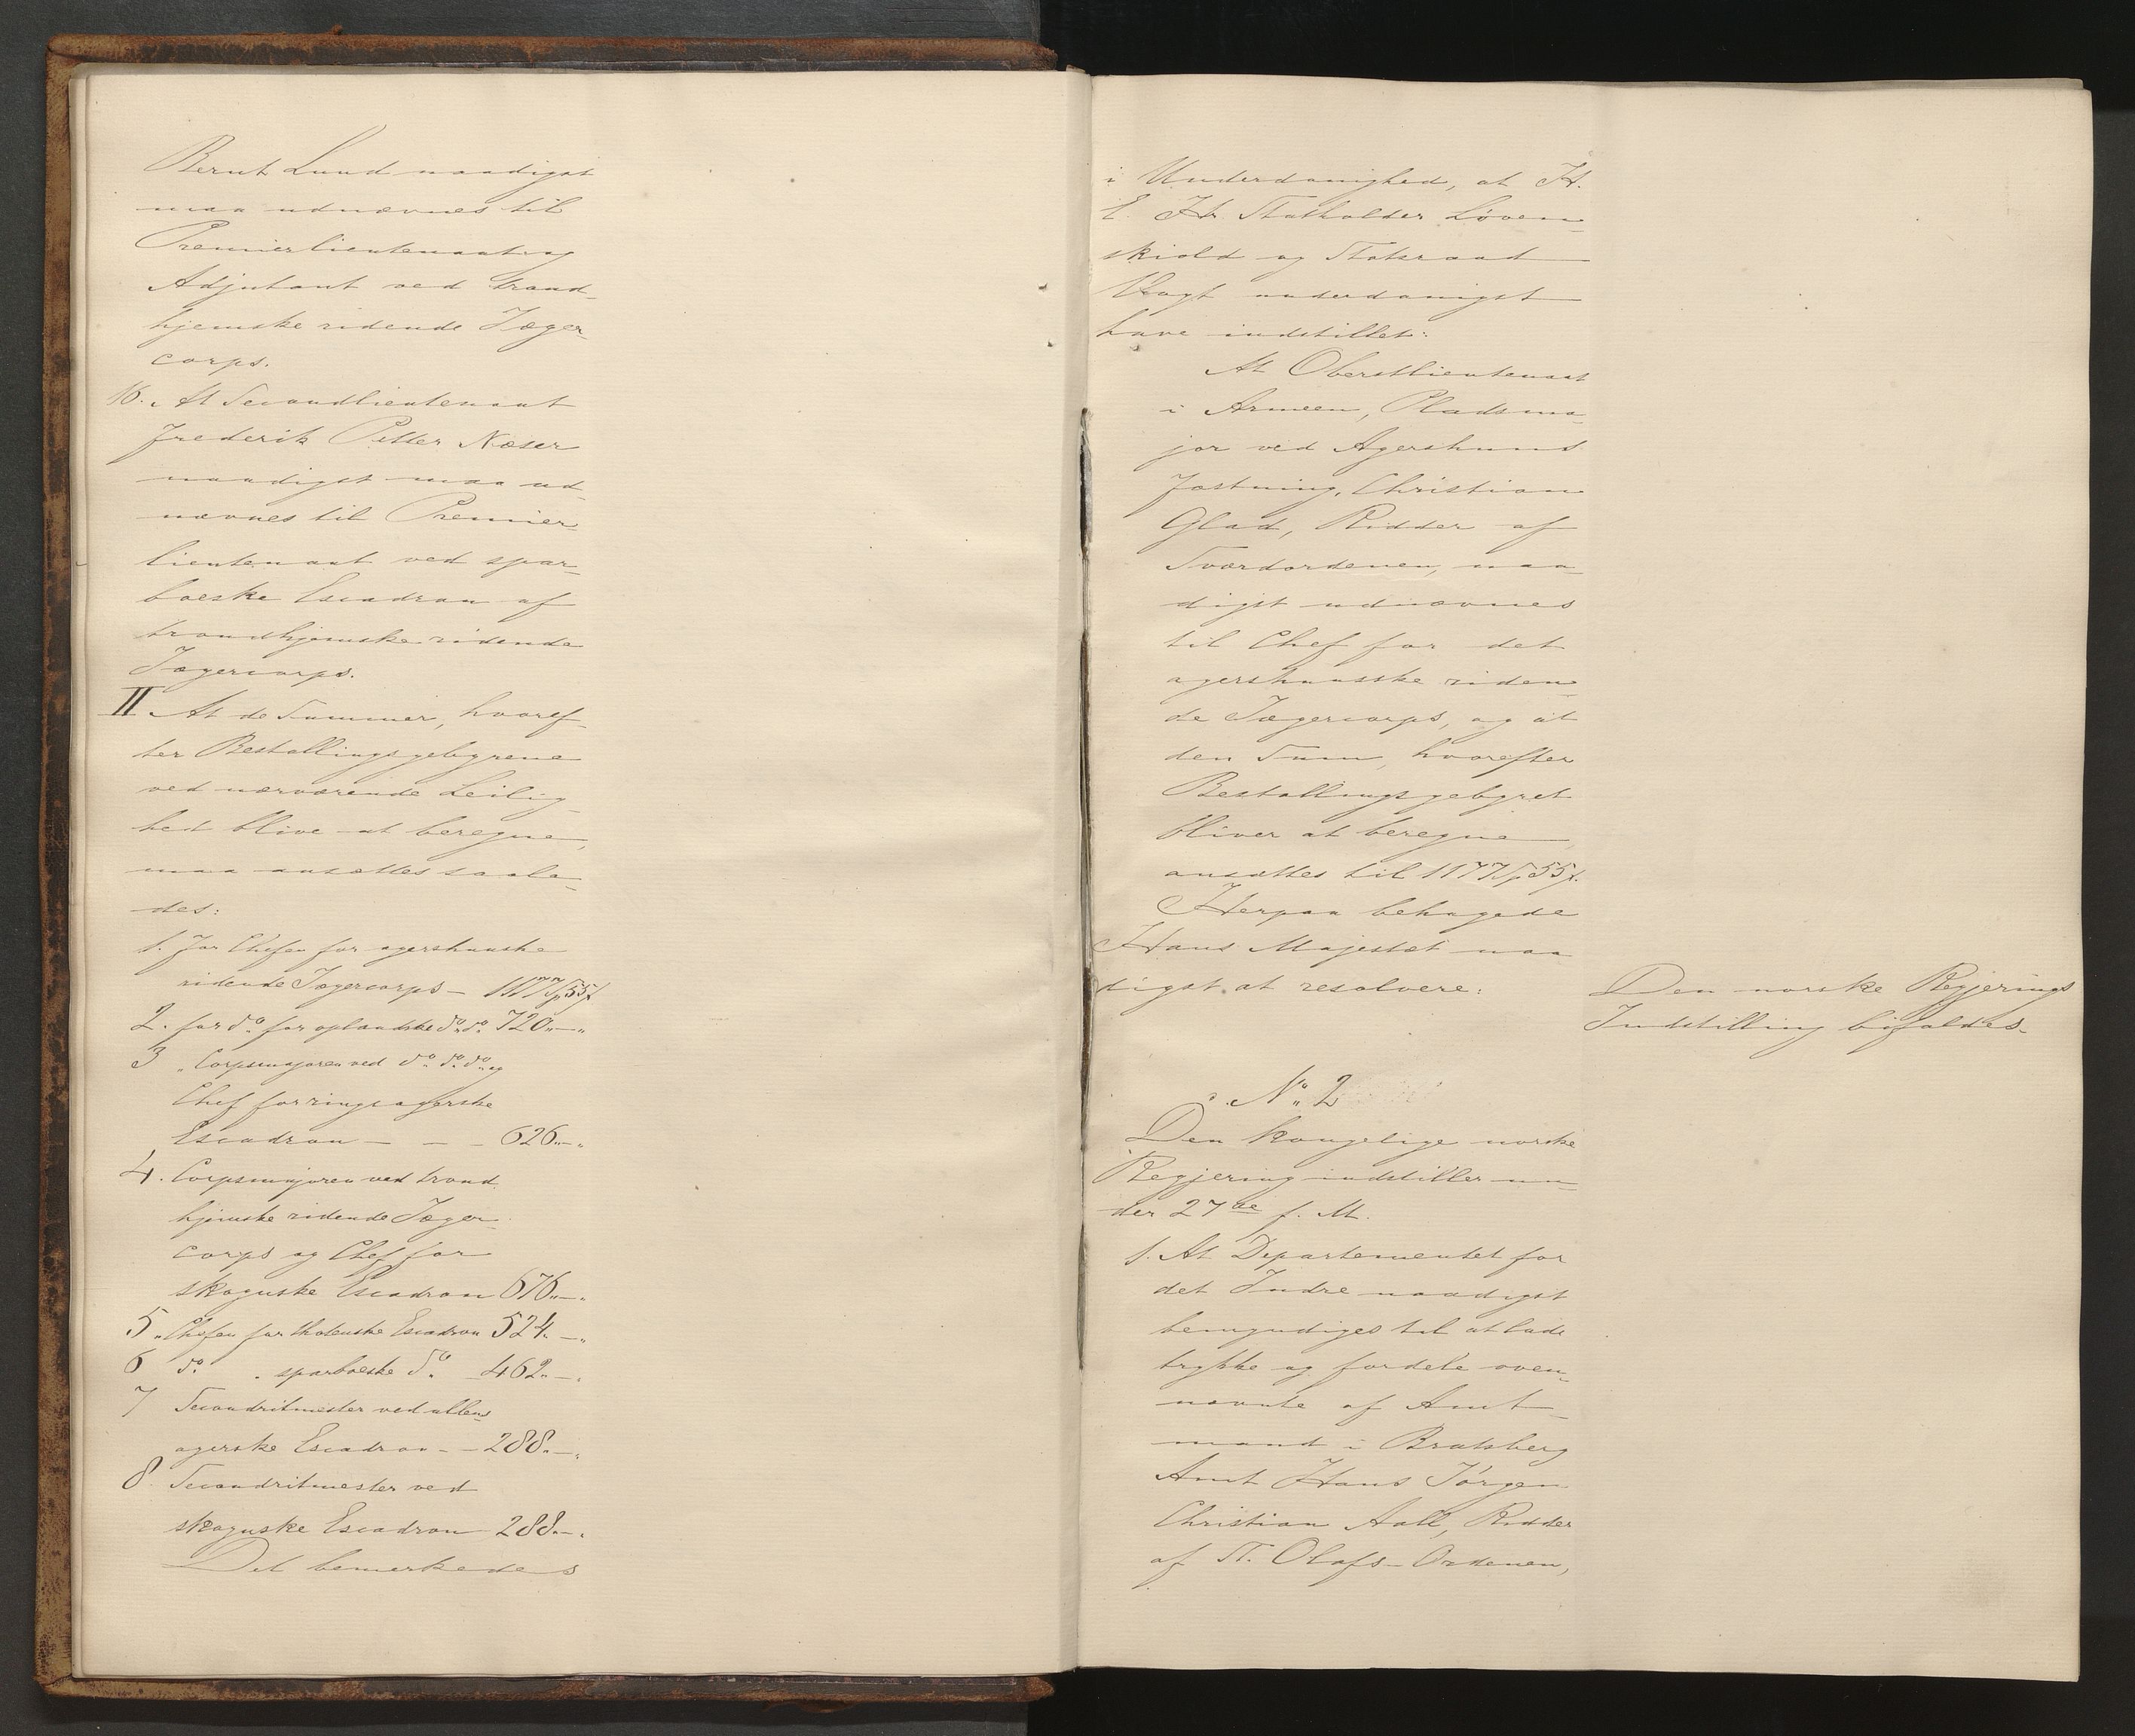 Bernt Lund naadigst
maa udnævnes til
Premierlieutenant og
Adjutant ved trond-
hjemske ridende Jæger-
corps.
16. At Secondlieutenant
Frederik Petter Næser
naadigst maa ud-
nævnes til Premier-
lieutenant ved spar-
boeske Escadron af
trondhjemske ridende
Jægercorps.
II At de Summer, hvoref-
ter Bestallingsgebyrene
ved nærværende Leilig-
hed blive at beregne,
maa ansættes saale-
des:
1. For Chefen for agershuuske
ridende Jægercorps — 1177 55
2. for do. for oplandske do. do. 720 „ — „
3 „ Corpsmajoren ved do. do. do. og
Chef for ringsagerske
Escadron — — — 626 „ — „
4. Corpsmajoren ved trond-
hjemske ridende Jæger-
corps og Chef for
skognske Escadron 676 „ — „
5 „ Chefen for thotenske Escadron 524 „ — „
6 do. „ sparboeske do. — 462 „ — „
7 Secondritmester ved ullens-
agerske Escadron — — 288 „ — „
8 Secondritmester ved
skognske Escadron — 288 „ — „
Det bemærkedes
i Underdanighed, at H.
E. Hr. Statholder Løven-
skiold og Statsraad
Vogt underdanigst
have indstillet:
At Oberstlieutenant
i Armeen, Pladsma-
jor ved Agershuus
Fæstning, Christian
Glad, Ridder af
Sværdordenen, naa-
digst udnævnes
til Chef for det
agershuusske riden-
de Jægercorps, og at
den Sum, hvorefter
Bestallingsgebyret
bliver at beregne,
ansættes til 1177 55
Herpaa behagede
Hans Majestæt naa-
digst at resolvere:
Den norske Regjerings
Indstilling bifaldes.
No. 2
Den kongelige norske
Regjering indstiller un-
der 27de f. M.
1. At Departementet for
det Indre naadigst
bemyndiges til at lade
trykke og fordele oven-
nævnte af Amt-
mand i Bratsberg
Amt Hans Jørgen
Christian Aall, Ridder
af St. Olafs-Ordenen,